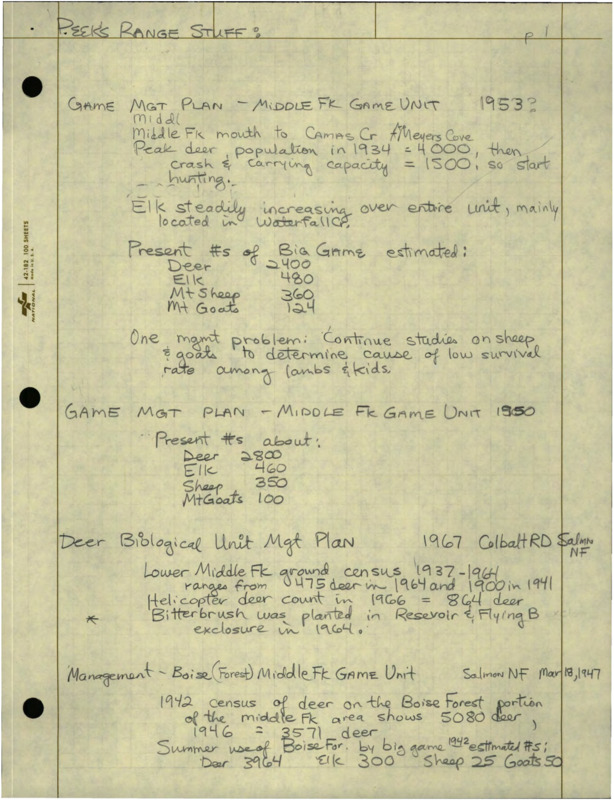 PEEK'S RANGE STUFF:
p 1
GAME MGT PLAN - MIDDLE FK GAME UNIT 1953?
Middl
Middle Fk mouth to Camas Cr Meyers Cove
Peak deer population in 1934 = 4000, then
crash & carrying capacity = 1500, so start
hunting.
Elk steadily increasing over entire unit, mainly
located in Waterfall Cr.
Present #s of Big Game estimated:
Deer 2400
Elk 480
Mt Sheep 360
Mt Goats 124
One mgmt problem: Continue studies on sheep
& goats to determine cause of low survival
rate among lambs & kids
GAME MGT PLAN - MIDDLE FK GAME UNIT 1950
Present #s about:
Deer 2800
Elk 460
Sheep 350
Mt Goats 100
Deer Biological Unit Mgt Plan 1967 Colbalt RD Salmon
NF
Lower Middle Fk ground census 1937-1964
ranges from 475 deer in 1964 and 1900 in 1941
Helicopter deer count in 1966 = 864 deer
* Bitterbrush was planted in Resevoir & Flying B
exclosure in 1964.
Management - Boise (Forest) Middle Fk GAME UNIT Salmon NF Mar 18, 1947
1942 census of deer on the Boise Forest portion
of the middle Fk area shows 5080 deer,
1946 = 3571 deer
Summer use of Boise For. by big game 1942 estimated #s:
Deer 3964 Elk 300 Sheep 25 Goats 50
42-182 100 SHEETS
MADE IN U.S.A.
NATIONAL